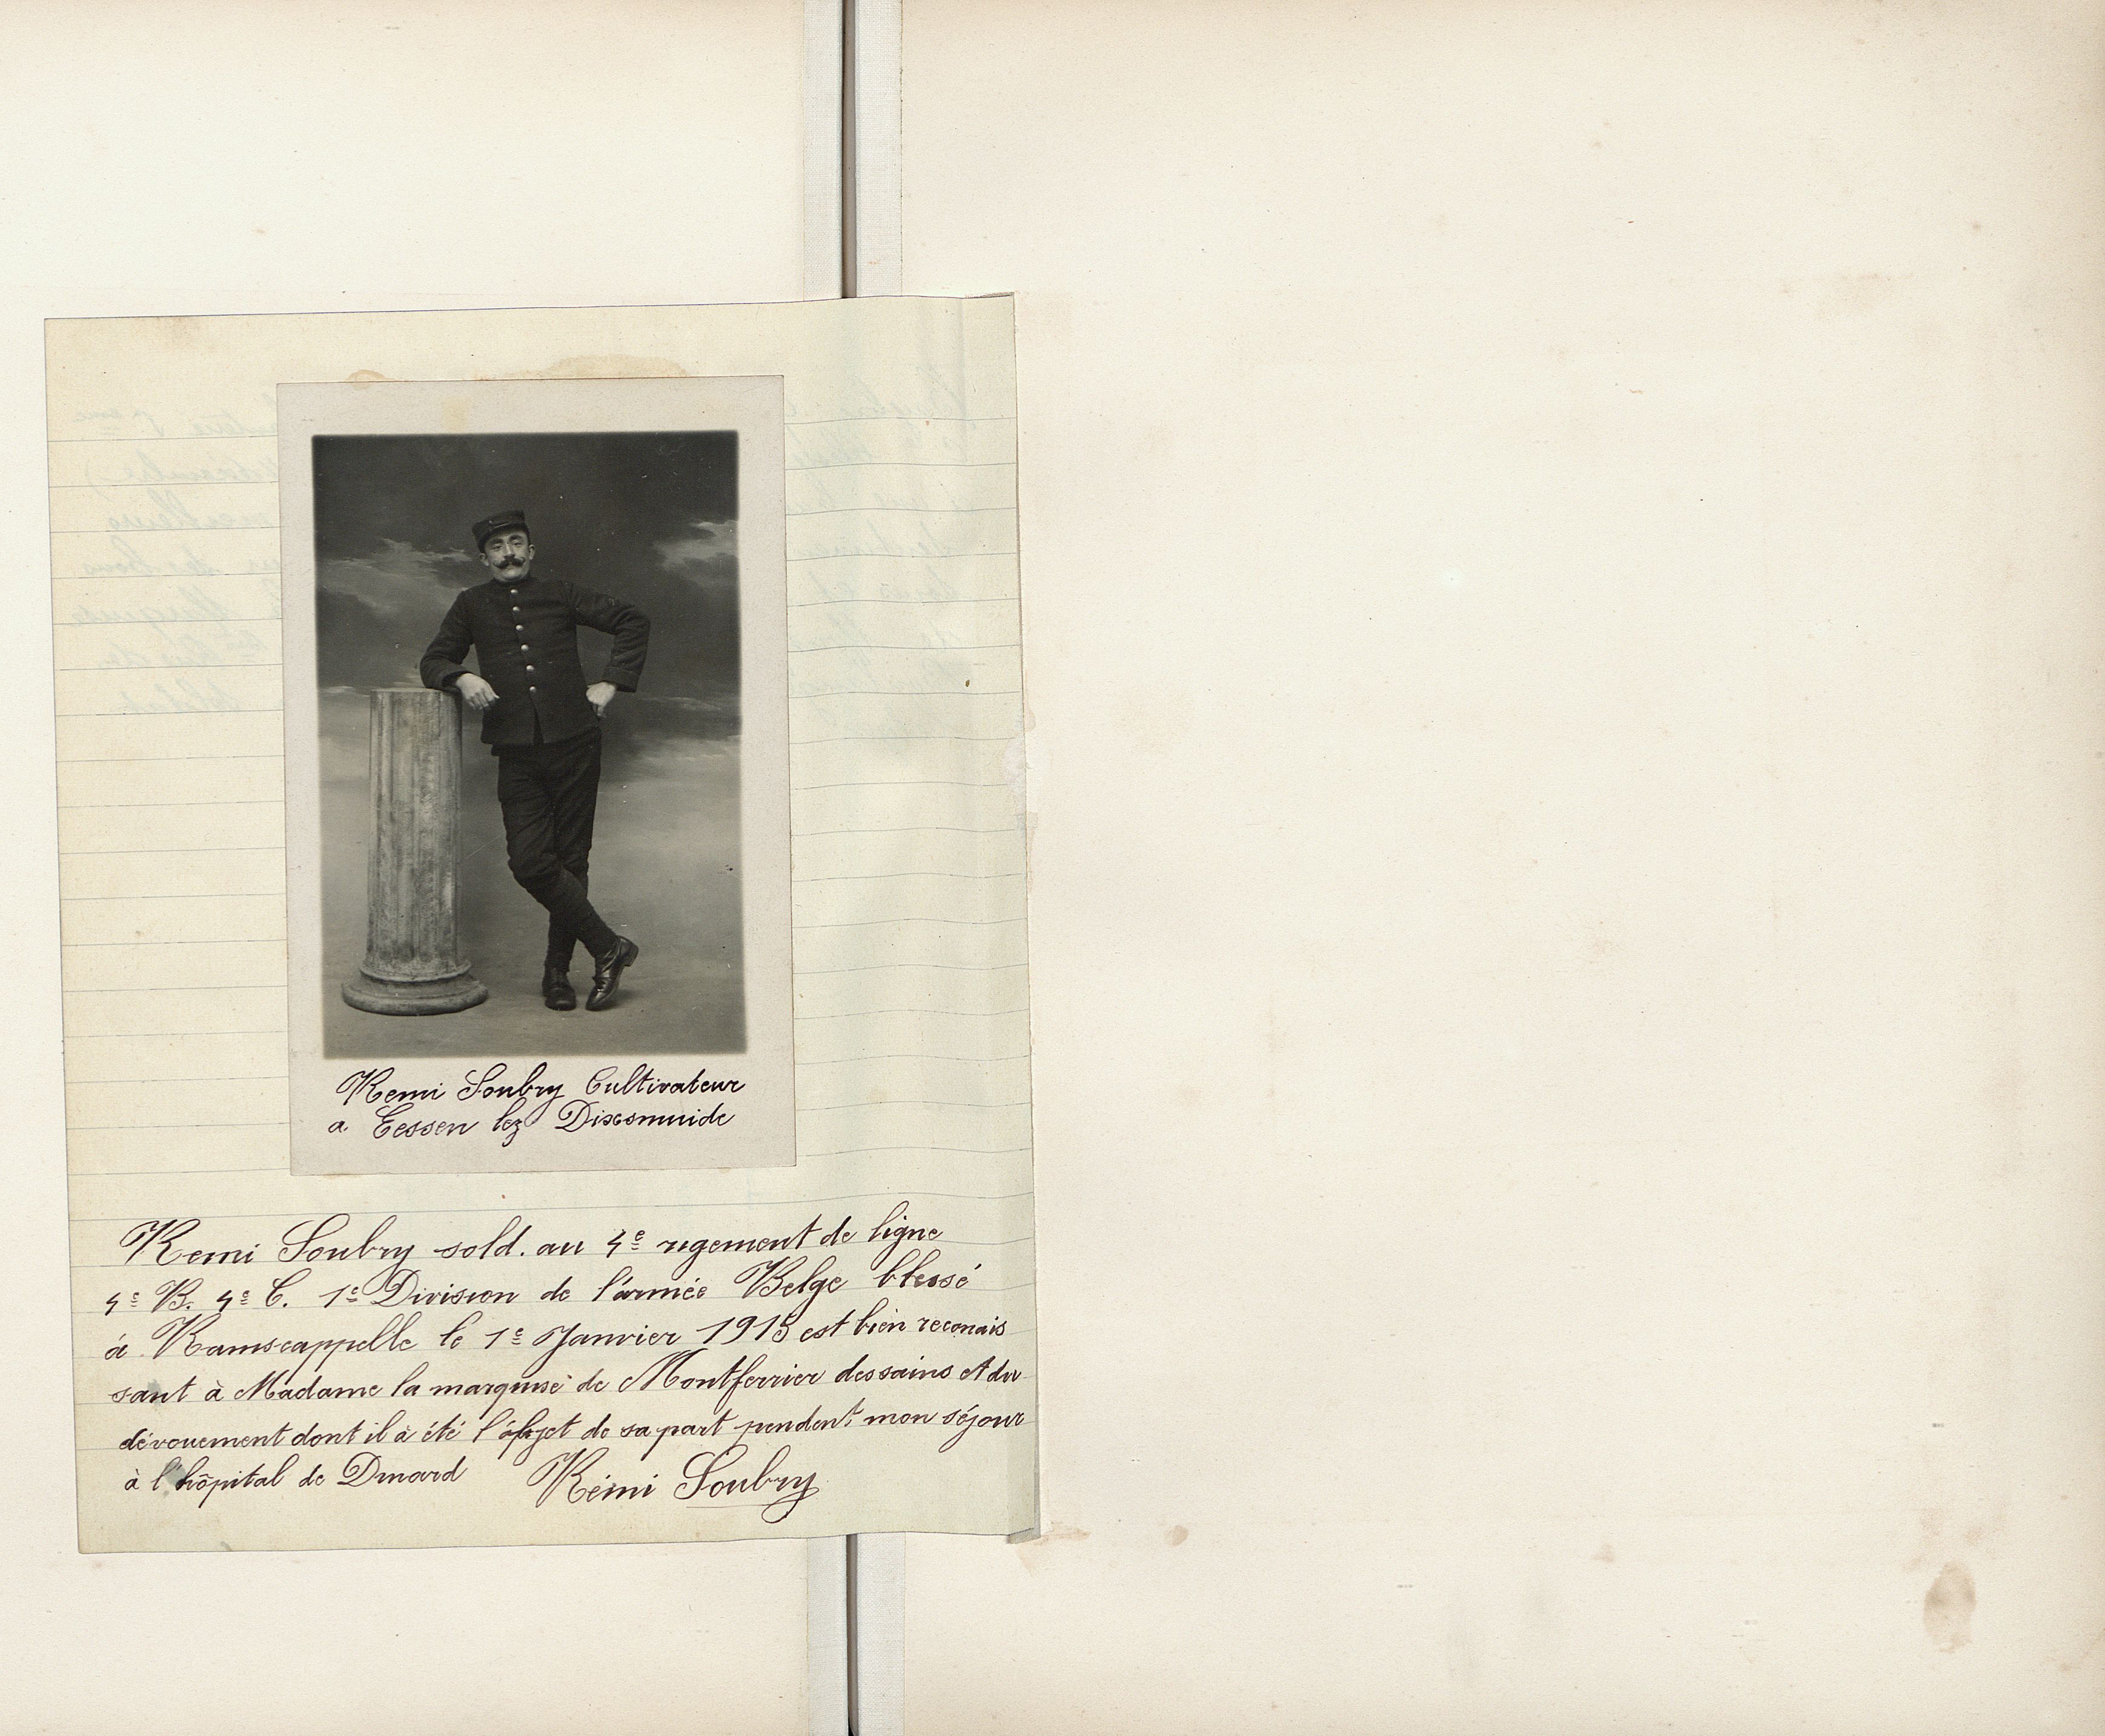 Remi Soubry Cultivateur
a Eessen lez Dixsmuide
Remi Soubry sold. au 4e regement de ligne
4e B. 4e C. 1e Division de l'armée Belge blessé
à Ramscappelle le 1e Janvier 1915 est bien reconais
sant à Madame la marquise de Montferrier des sains et du
dévouement dont il à été l'objet de sa part pendent mon séjour
à l'hôpital de Dinard Rémi Soubry